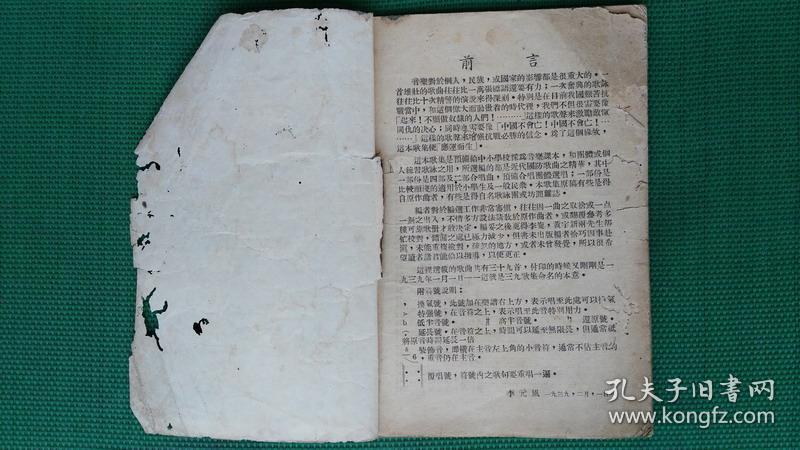 前言
音樂對於個人，民族，或國家的影響都是很重大的。一
首雄壯的歌曲往往比一萬張標語還要有力；一次奮興的歌詠
往往比十次精警的演說來得深刻。特別是在目前我國艱苦抗
戰當中，和這個偉大而動盪着的時代裡，我們不但很需要像
「起來！不願做奴隸的人們！………」這樣的歌聲來激勵敵愾
同仇的决心；同時也需要像「中國不會亡！中國不會亡！
………」這樣的歌聲來增强抗戰必勝的信念。爲了這個緣故，
這本歌集便「應運而生」。
這本歌集是預備給中小學校採爲音樂課本，和團體或個
人練習歌詠之用，所選編的都是近代國防歌曲之精華，其中
一部份是四部及二部合唱曲，預備合唱團體選唱；一部份是
比較淺的適用於小學生及一般民衆。本歌集原稿有些是得
自原作曲者，有些是得自名歌詠團或坊間雜誌。
編者對於編選工作非常審愼，往往因一曲之取捨或一點
一劃之出入，不惜多方設法請敎於原作曲者，或翻覆參考多
種可靠歌册才敢决定。編妥之後更得李
忙校對，錯漏之處已極力減少，但將未出版編者恰巧因事赴
，未能重複檢對，的地方，或者未曾發覺，所以很希
望讀者諸君能給以指導，以便更正。
這裡選載的歌曲共有三十九首，付印的時候又剛剛是一
九三九年一月一日——這就是三九歌集命名的本意。
附 號說明：
， 換氣號，此號加在樂譜右上方，表示唱至此處可以換氣
> 特强號，在音符之上，表示唱至此音特別用力。
b 低半音號。 # 高半音號。 還原號。
延長號。在音符之上，時間可以延至無限長，但通常祗
將原音時間延長一倍
裝飾音，卽積在主音左上角的小音符，通常不佔主音的
，重音仍在主音。
覆唱號，符號內之歌句要重唱一遍。
李元 一九三九，二月，一
孔夫子旧书网
kongfz.com